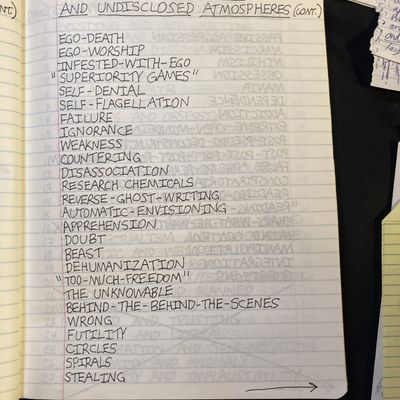 NT.)
AND UNDISCLOSED ATMOSPHERES (CONT.)
EGO-DEATH
EGO-WORSHIP
INFESTED-WITH-EGO
"SUPERIORITY GAMES"
SELF-DENIAL
SELF-FLAGELLATION
FAILURE
IGNORANCE
WEAKNESS
COUNTERING
DISASSOCIATION
RESEARCH CHEMICALS
REVERSE-GHOST-WRITING
AUTOMATIC-ENVISIONING
APPREHENSION
DOUBT
BEAST
DEHUMANIZATION
"TOO-MUCH-FREEDOM"
THE UNKNOWABLE
BEHIND-THE-BEHIND-THE-SCENES
WRONG
FUTILITY
CIRCLES
SPIRALS
STEALING